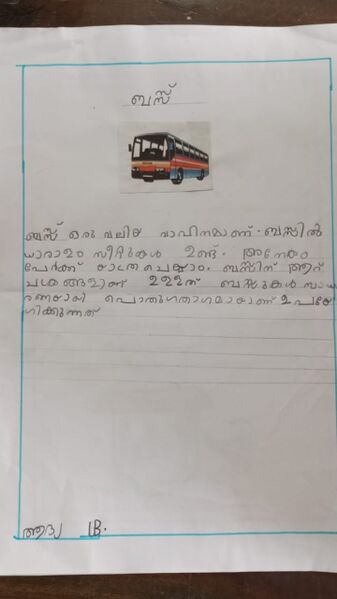 ബസ്
ബസ് ഒരു വലിയ വാഹനമാണ്. ബസ്സിൽ
ധാരാളം സീറ്റുകൾ ഉണ്ട്. അനേകം
പേർക്ക് യാത്ര ചെയ്യാം. ബസ്സിന് ആറ്
ചക്രങ്ങളാണ് ഉള്ളത് ബസ്സുകൾ സാധ
രണയായി പൊതുഗതാഗതമായാണ് ഉപയോ
ഗിക്കുന്നത്
ആദ്യ 1B.